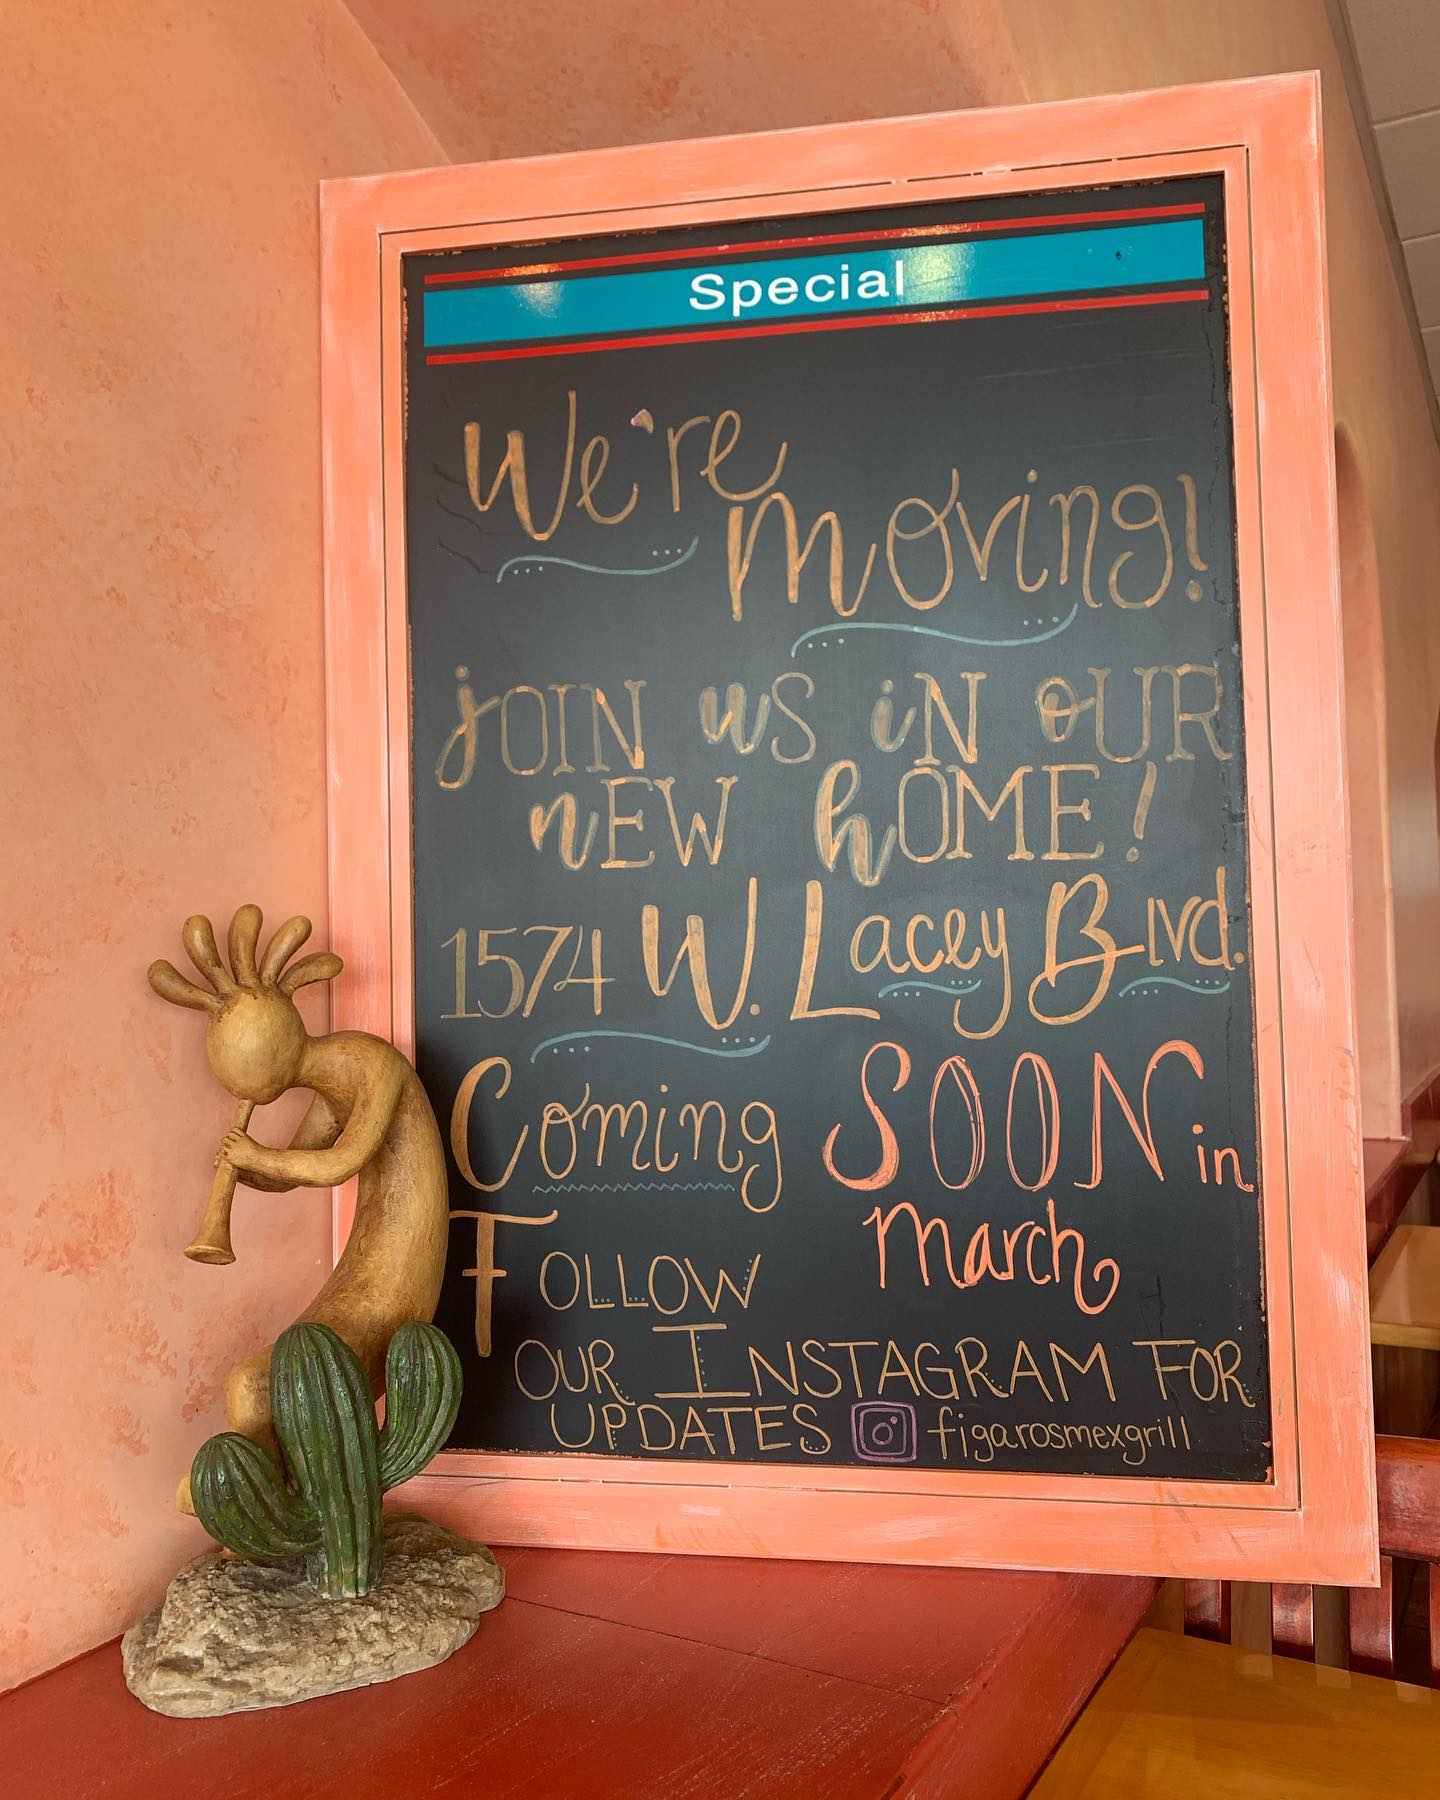 Special
We're
Moving!
jOIN uS iN oUR
nEW hOME!
1574 W. Lacey Blvd.
Coming SOON in
March
FOLLOW
OUR INSTAGRAM FOR
UPDATES figarosmexgrill